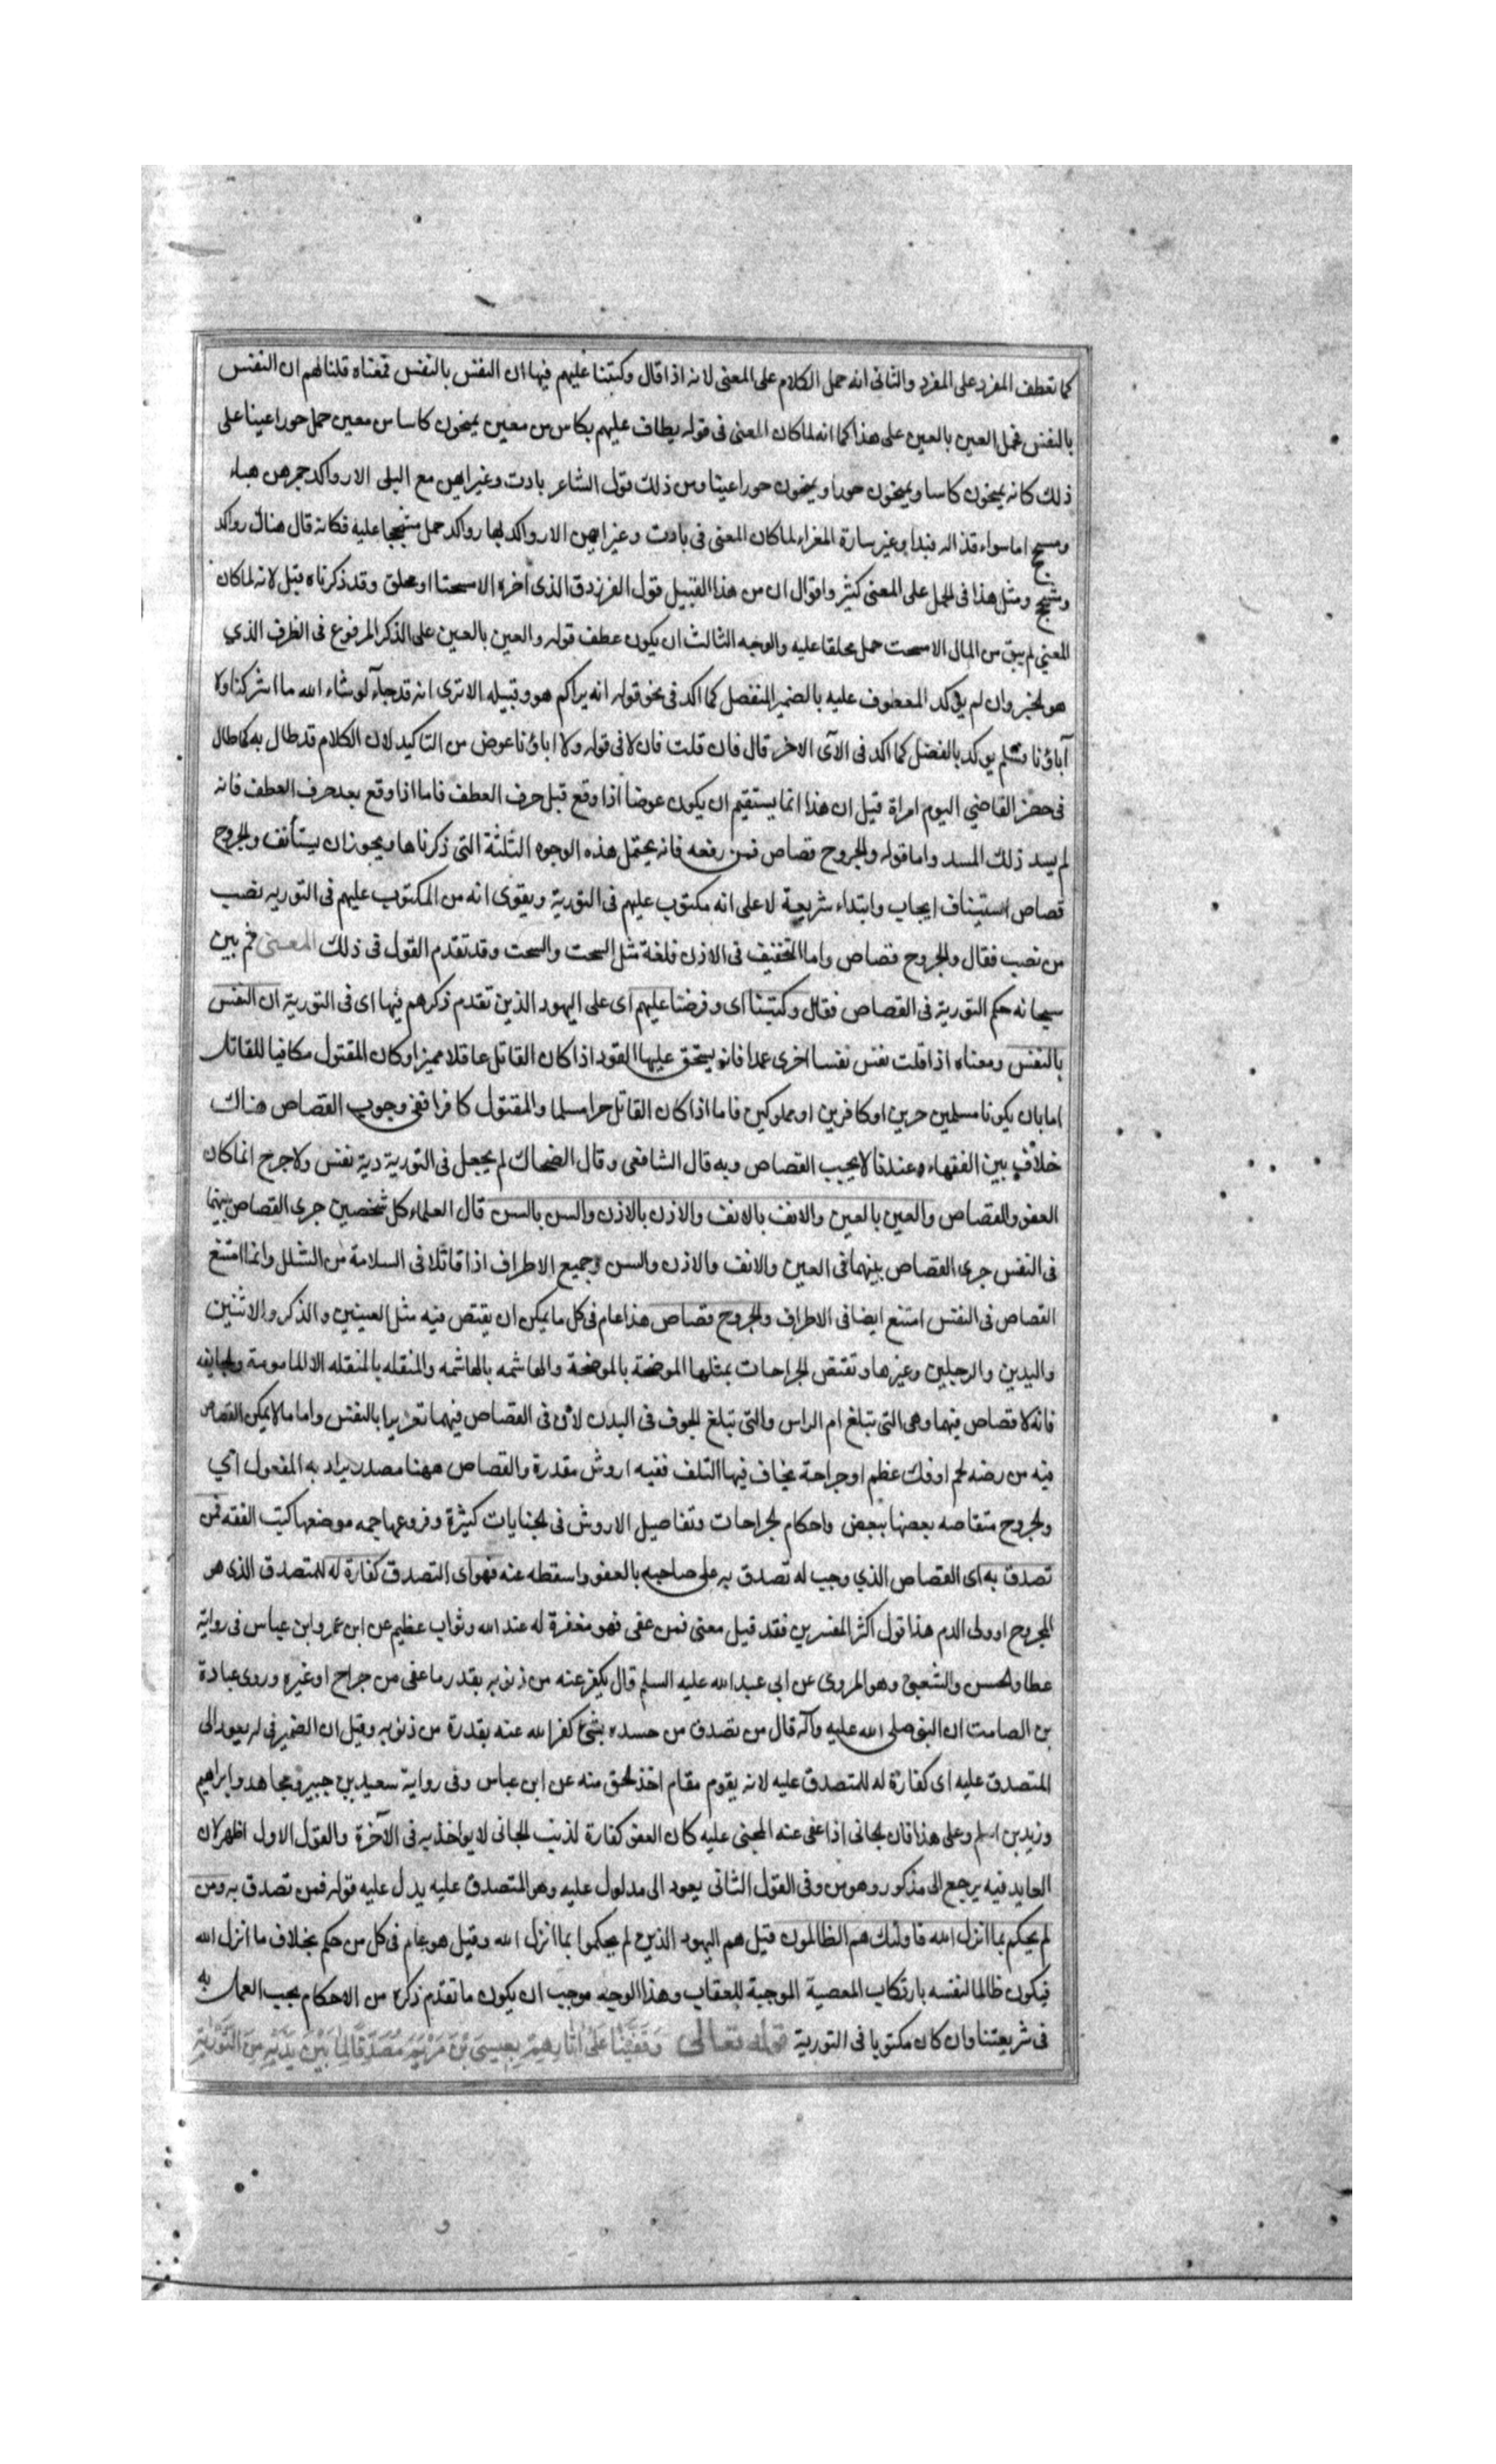 كما تعطف المفرد على المفرد والثانى انه حمل الكلام على المعنى لانه اذا قال وكتبنا عليهم فيها ان النفس بالنفس فمعناه قلنا لهم ان النفس
بالنفس فحمل العين بالعين على هذا كما انه لما كان المعنى فى قوله يطاف عليهم بكاس من معين يمنحون كاسا من معين حمل حورا عينا على
ذلك كانه يمنحون كاسا ويمنحون حورا ويمنحون حورا عينا ومن ذلك قول الشاعر بادت وغير ايهن مع البلى الا رواكد جمرهن هباء
ومشجج اما سواء قذاله فبدا وغير سارة المغراء لما كان المعنى فى بادت وغير ايهن الا رواكد بها رواكد حمل مشججا عليه فكانه قال هناك رواكد
ومشجج ومثل هذا فى الحمل على المعنى كثير واقول ان من هذا القبيل قول الفرزدق الذى اخره الا مسحتا او محلق وقد ذكرناه قبل لانه لما كان
المعني لم يبق من المال الا مسحت حمل محلقا عليه والوجه الثالث ان يكون عطف قوله والعين بالعين على الذكر المرفوع فى الظرف الذي
هو الخبر وان لم يؤكد المعطوف عليه بالضمير المنفصل كما اكد فى نحو قوله انه يراكم هو وقبيله الا ترى انه قد جاء لو شاء الله ما اشركنا ولا
آباؤنا فلم يوكد بالفصل كما اكد فى الآى الاخر قال فان قلت فان لا فى قوله ولا اباؤنا عوض من التاكيد لان الكلام قد طال به كما طال
فى حضر القاضي اليوم امراة قيل ان هذا انما يستقيم ان يكون عوضا اذا وقع قبل حرف العطف فاما اذا وقع بعد حرف العطف فانه
لم يسد ذلك المسد واما قوله والجروح قصاص فمن رفعه فانه يحتمل هذه الوجوه الثلثة التى ذكرناها ويجوز ان يستأنف والجروح
قصاص استيناف ايجاب وابتداء شريعة لا على انه مكتوب عليهم فى التورية ويقوى انه من المكتوب عليهم فى التوريه نصب
من نصب فقال والجروح قصاص واما التخفيف فى الاذن فلغة مثل السحت والسحت وقد تقدم القول فى ذلك المعنى ثم بين
سبحانه حكم التورية فى القصاص فقال وكتبنا اى وفرضنا عليهم اى على اليهود الذين تقدم ذكرهم فيها اى فى التورية ان النفس
بالنفس ومعناه اذا قتلت نفس نفسا اخرى عمدا فانه يستحق عليها القود اذا كان القاتل عاقلا مميزا وكان المقتول مكافيا للقاتل
اما بان يكونا مسلمين حرين او كافرين او مملوكين فاما اذا كان القاتل حرا مسلما والمقتول كافرا ففى وجوب القصاص هناك
خلاف بين الفقهاء وعندنا لا يجب القصاص وبه قال الشافعى وقال الضحاك لم يجعل فى التورية دية نفس ولا جرح انما كان
العفو والقصاص والعين بالعين والانف بالانف والاذن بالاذن والسن بالسن قال العلماء كل شخصين جرى القصاص بينهما
فى النفس جرى القصاص بينهما فى العين والانف والاذن والسن وجميع الاطراف اذا تماثلا فى السلامة من الشلل وانما امتنع
القصاص فى النفس امتنع ايضا فى الاطراف والجروح قصاص هذا عام فى كل ما يمكن ان يقتص فيه مثل العينين والذكر والانثيين
واليدين والرجلين وغيرها وتقتص الجراحات بمثلها الموضحة بالموضحة والهاشمه بالهاشمه والمنقله بالمنقله الا المامومة والجايفه
فانه لا قصاص فيهما وهى التى تبلغ ام الراس والتى تبلغ الجوف فى البدن لان فى القصاص فيهما تعزيرا بالنفس واما ما لا يمكن القصاص
فيه من رضه لحم او فك عظم او جراحة يخاف فيها التلف ففيه اروش مقدرة والقصاص ههنا مصدر يراد به المفعول اي
والجروح متقاصه بعضها ببعض واحكام الجراحات وتفاصيل الاروش فى الجنايات كثيرة وفروعها جمه موضعها كتب الفقه فمن
تصدق به اى القصاص الذي وجب له تصدق به على صاحبه بالعفو واسقطه عنه فهو اى التصدق كفارة له للمتصدق الذى هو
المجروح او ولى الدم هذا قول اكثر المفسرين فقد قيل معنى فمن عفى فهو مغفرة له عند الله وثواب عظيم عن ابن عمر وابن عباس فى رواية
عطا والحسن والشعبى وهو المروى عن ابى عبد الله عليه السلم قال يكفر عنه من ذنوبه بقدر ما عفى من جراح او غيره وروى عبادة
بن الصامت ان النبى صلى الله عليه وآله قال من تصدق من جسده بشئ كفر الله عنه بقدرة من ذنوبه وقيل ان الضمير فى له يعود الى
المتصدق عليه اى كفارة له للمتصدق عليه لانه يقوم مقام اخذ الحق منه عن ابن عباس وفى رواية سعيد بن جبير ومجاهد وابراهيم
وزيد بن اسلم وعلى هذا فان الجانى اذا عفى عنه المجنى عليه كان العفو كفارة لذنب الجانى لا يواخذ به فى الآخرة والقول الاول اظهر لان
العايد فيه يرجع الى مذكور وهو من وفى القول الثانى يعود الى مدلول عليه وهو المتصدق عليه يدل عليه قوله فمن تصدق به ومن
لم يحكم بما انزل الله فاولئك هم الظالمون قيل هم اليهود الذين لم يحكموا بما انزل الله وقيل هو عام فى كل من حكم بخلاف ما انزل الله
فيكون ظالما لنفسه بارتكاب المعصية الموجبة للعقاب وهذا الوجه موجب ان يكون ما تقدم ذكره من الاحكام يجب العمل به
فى شريعتنا وان كان مكتوبا فى التورية قوله تعالى وَقَفَّيْنَا عَلَىٰ اٰثَارِهِمْ بِعِيسَى بْنِ مَرْيَمَ مُصَدِّقًا لِمَا بَيْنَ يَدَيْهِ مِنَ التَّوْرٰيةِ